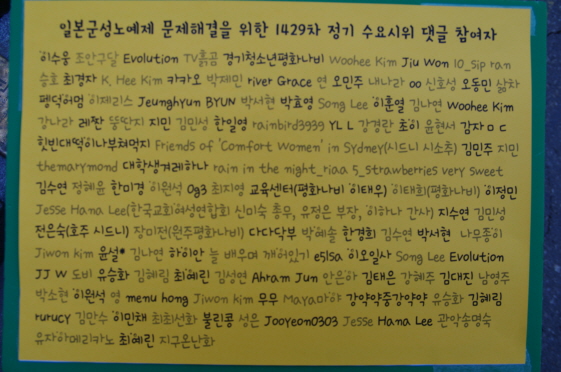 일본군성노예제 문제해결을 위한 1429차 정기 수요시위 댓글 참여자
이수웅 조안구달 Evolution TV흙곰 경기청소년평화나비 Woohee Kim Jiu Won 10_sip ran
승호 최경자 K. Hee Kim 카카오 박제민 river Grace 연 오민주 내나라 oo 신호성 오동민 삶차
펭덕어멈 이제리스 Jeunghyun BYUN 박서현 박효영 Song Lee 이훈열 김나연 Woohee Kim
강나라 레짠 뚱딴지 지민 김민성 한일영 rainbird3939 YL L 강경란 초이 윤현서 감자 o c
힛빈대떡이나부쳐먹지 Friends of 'Comfort Women' in Sydney(시드니 시소추) 김민주 지민
themarymond 대학생겨레하나 rain in the night_riaa 5_strawberries very sweet
김수연 정혜윤 한미경 이원석 0g3 최지영 교육센터(평화나비 이태우) 이태희(평화나비) 이정민
Jesse Hana Lee(한국교회여성연합회 신미숙 총무, 유정은 부장, 이하나 간사) 지수연 김민성
전은숙(호주 시드니) 장미전(원주평화나비) 다다닥부 박예솔 한경희 김수연 박서현 나무종이
Jiwon kim 윤설* 김나연 하이안 늘 배우며 깨어있기 e5lsa 이오일사 Song Lee Evolution
JJ W 도비 유승화 김혜림 최혜린 김성연 Ahram Jun 안은아 김태은 강혜주 김대진 남영주
박소현 이원석 영 menu hong Jiwon kim 무무 Maya마야 강약약중강약약 유승화 김혜림
rurucy 김만수 이민채 최최선화 불린콩 성은 Jooyeon0303 Jesse Hana Lee 관악송명숙
유자아메리카노 최혜린 지구온난화